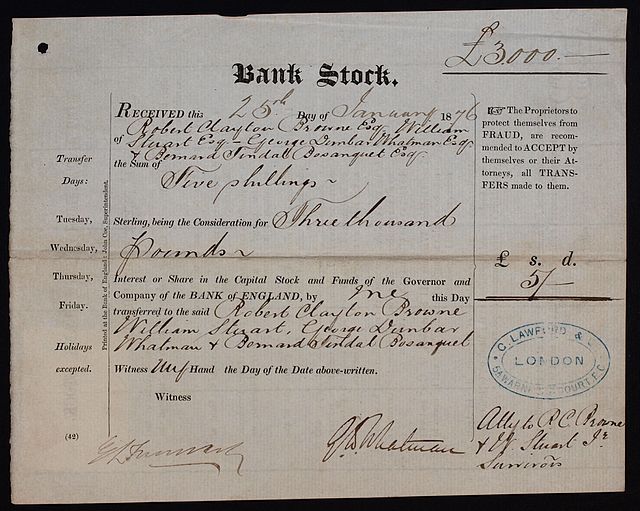 £3000.—
Bank Stock.
RECEIVED this 25th Day of January 1876
Robert Clayton Browne Esq William
of Stuart Esq – George Dunbar Whatman Esq
& Bernard Tindal Bosanquet Esq
the Sum of
Five shillings
Sterling, being the Consideration for Three thousand
Pounds
Interest or Share in the Capital Stock and Funds of the Governor and
Company of the BANK of ENGLAND, by me this Day
transferred to the said Robert Clayton Browne
William Stuart, George Dunbar
Whatman & Bernard Tindal Bosanquet
Witness my Hand the Day of the Date above-written.
Witness
G D Whatman
Atty to R C Browne
& W Stuart Jr
Survivors
☞ The Proprietors to
protect themselves from
FRAUD, are recom-
mended to ACCEPT by
themselves or their At-
torneys, all TRANS-
FERS made to them.
£ s. d.
5/—
C. LAWFORD &
LONDON
COURT, E.C.
Transfer
Days:
Tuesday,
Wednesday,
Thursday,
Friday.
Holidays
excepted.
(42)
Printed at the Bank of England: John Coe, Superintendent.